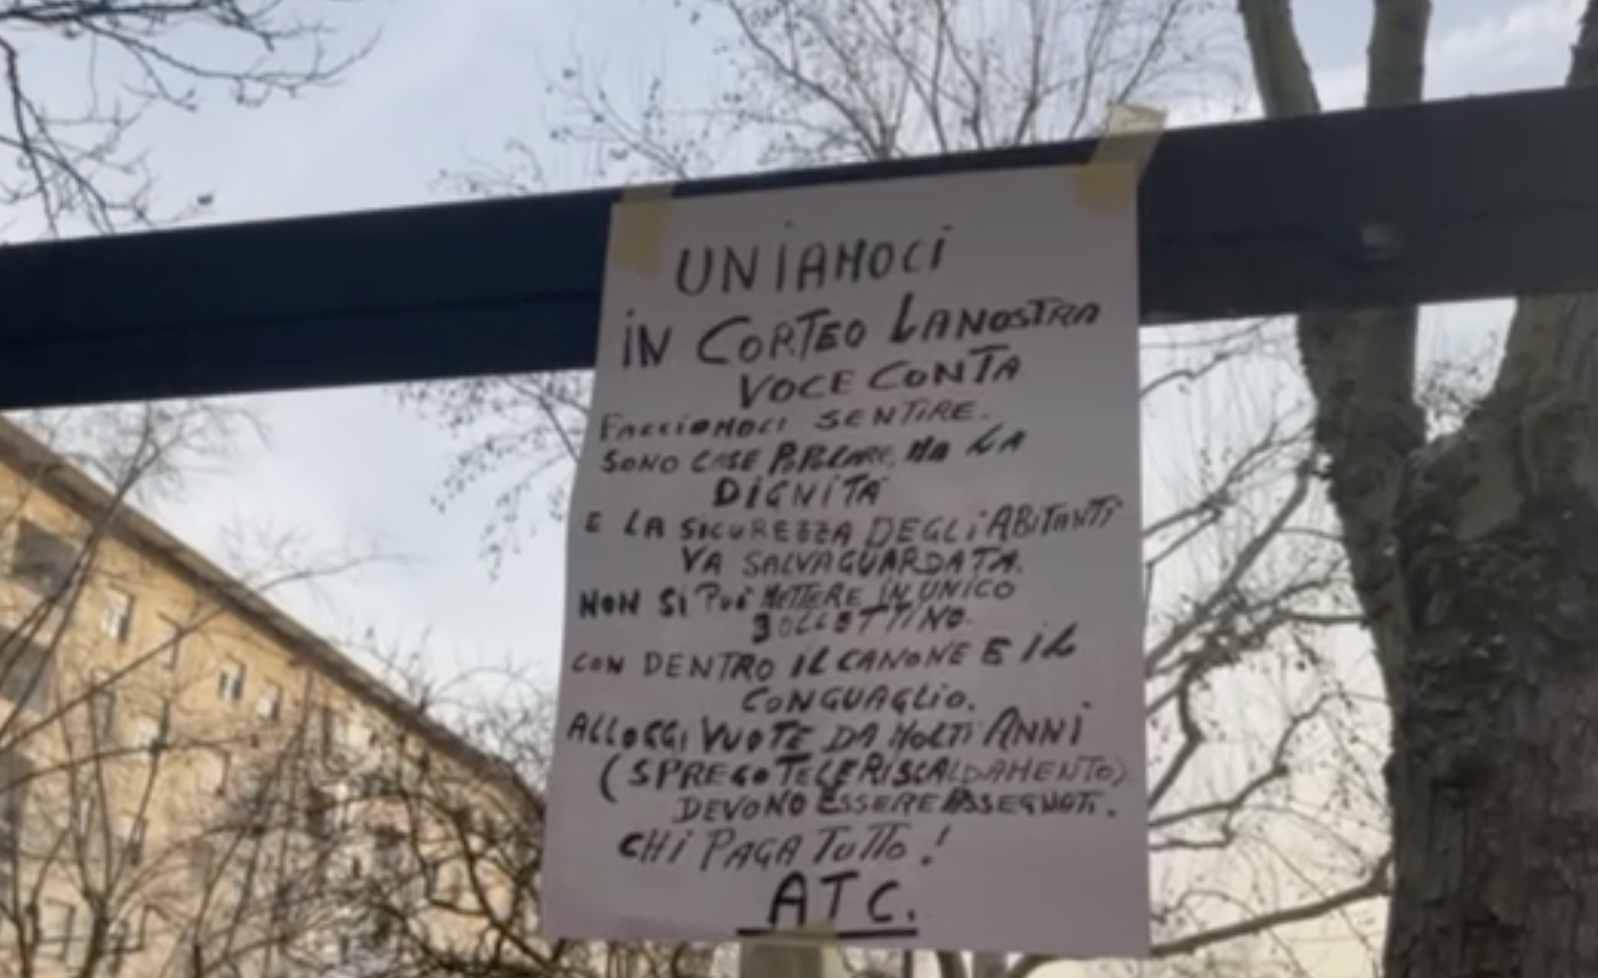 UNiAMOCi
iN CORTEO LANOSTRA
VOCE CONTA
FACCIAMOCI SENTIRE.
SONO CASE POPOLARE, MA LA
DIGNITÀ
E LA SICUREZZA DEGLI ABITANTI
VA SALVAGUARDATA.
NON SI PUÒ METTERE IN UNICO
BOLLETTINO.
CON DENTRO IL CANONE E IL
CONGUAGLIO.
ALLOGGI VUOTE DA MOLTI ANNI
(SPREGO TELERISCALDAMENTO)
DEVONO ESSERE ASSEGNATI.
CHI PAGA TUTTO!
ATC.